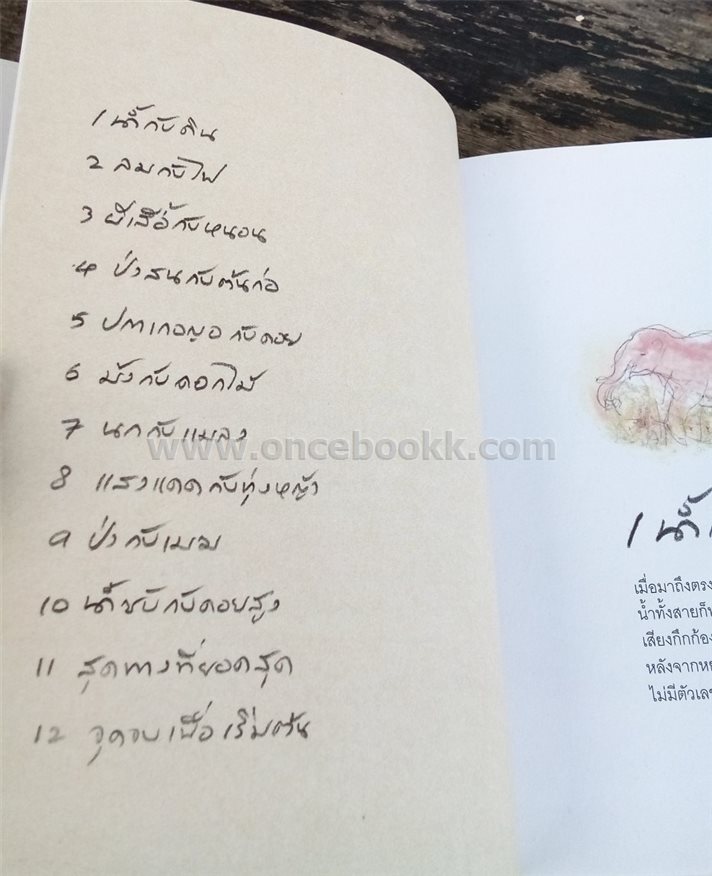 1 น้ำกับดิน
2 ลมกับไฟ
3 ผีเสื้อกับหนอน
4 ป่าสนกับต้นก่อ
5 ปกาเกอญอกับดอย
6 ม้งกับดอกไม้
7 นกกับแมลง
8 แสงแดดกับทุ่งหญ้า
9 ป่ากับเมฆ
10 น้ำซับกับดอยสูง
11 สุดทางที่ยอดสุด
12 จุดจบเพื่อเริ่มต้น
www.oncebookk.com
1 น้ำ
เมื่อมาถึงตรง
น้ำทั้งสายก็
เสียงกึกก้อง
หลังจากห
ไม่มีตัวเล